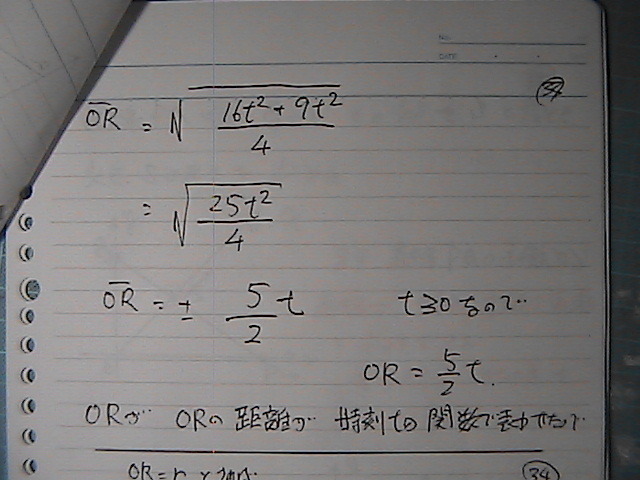 NO.
DATE
OR = √(16t²+9t²/4)
= √(25t²/4)
OR = ± 5/2 t t≧0なので
OR = 5/2 t.
ORが ORの距離が 時刻tの関数で表わせたので
34